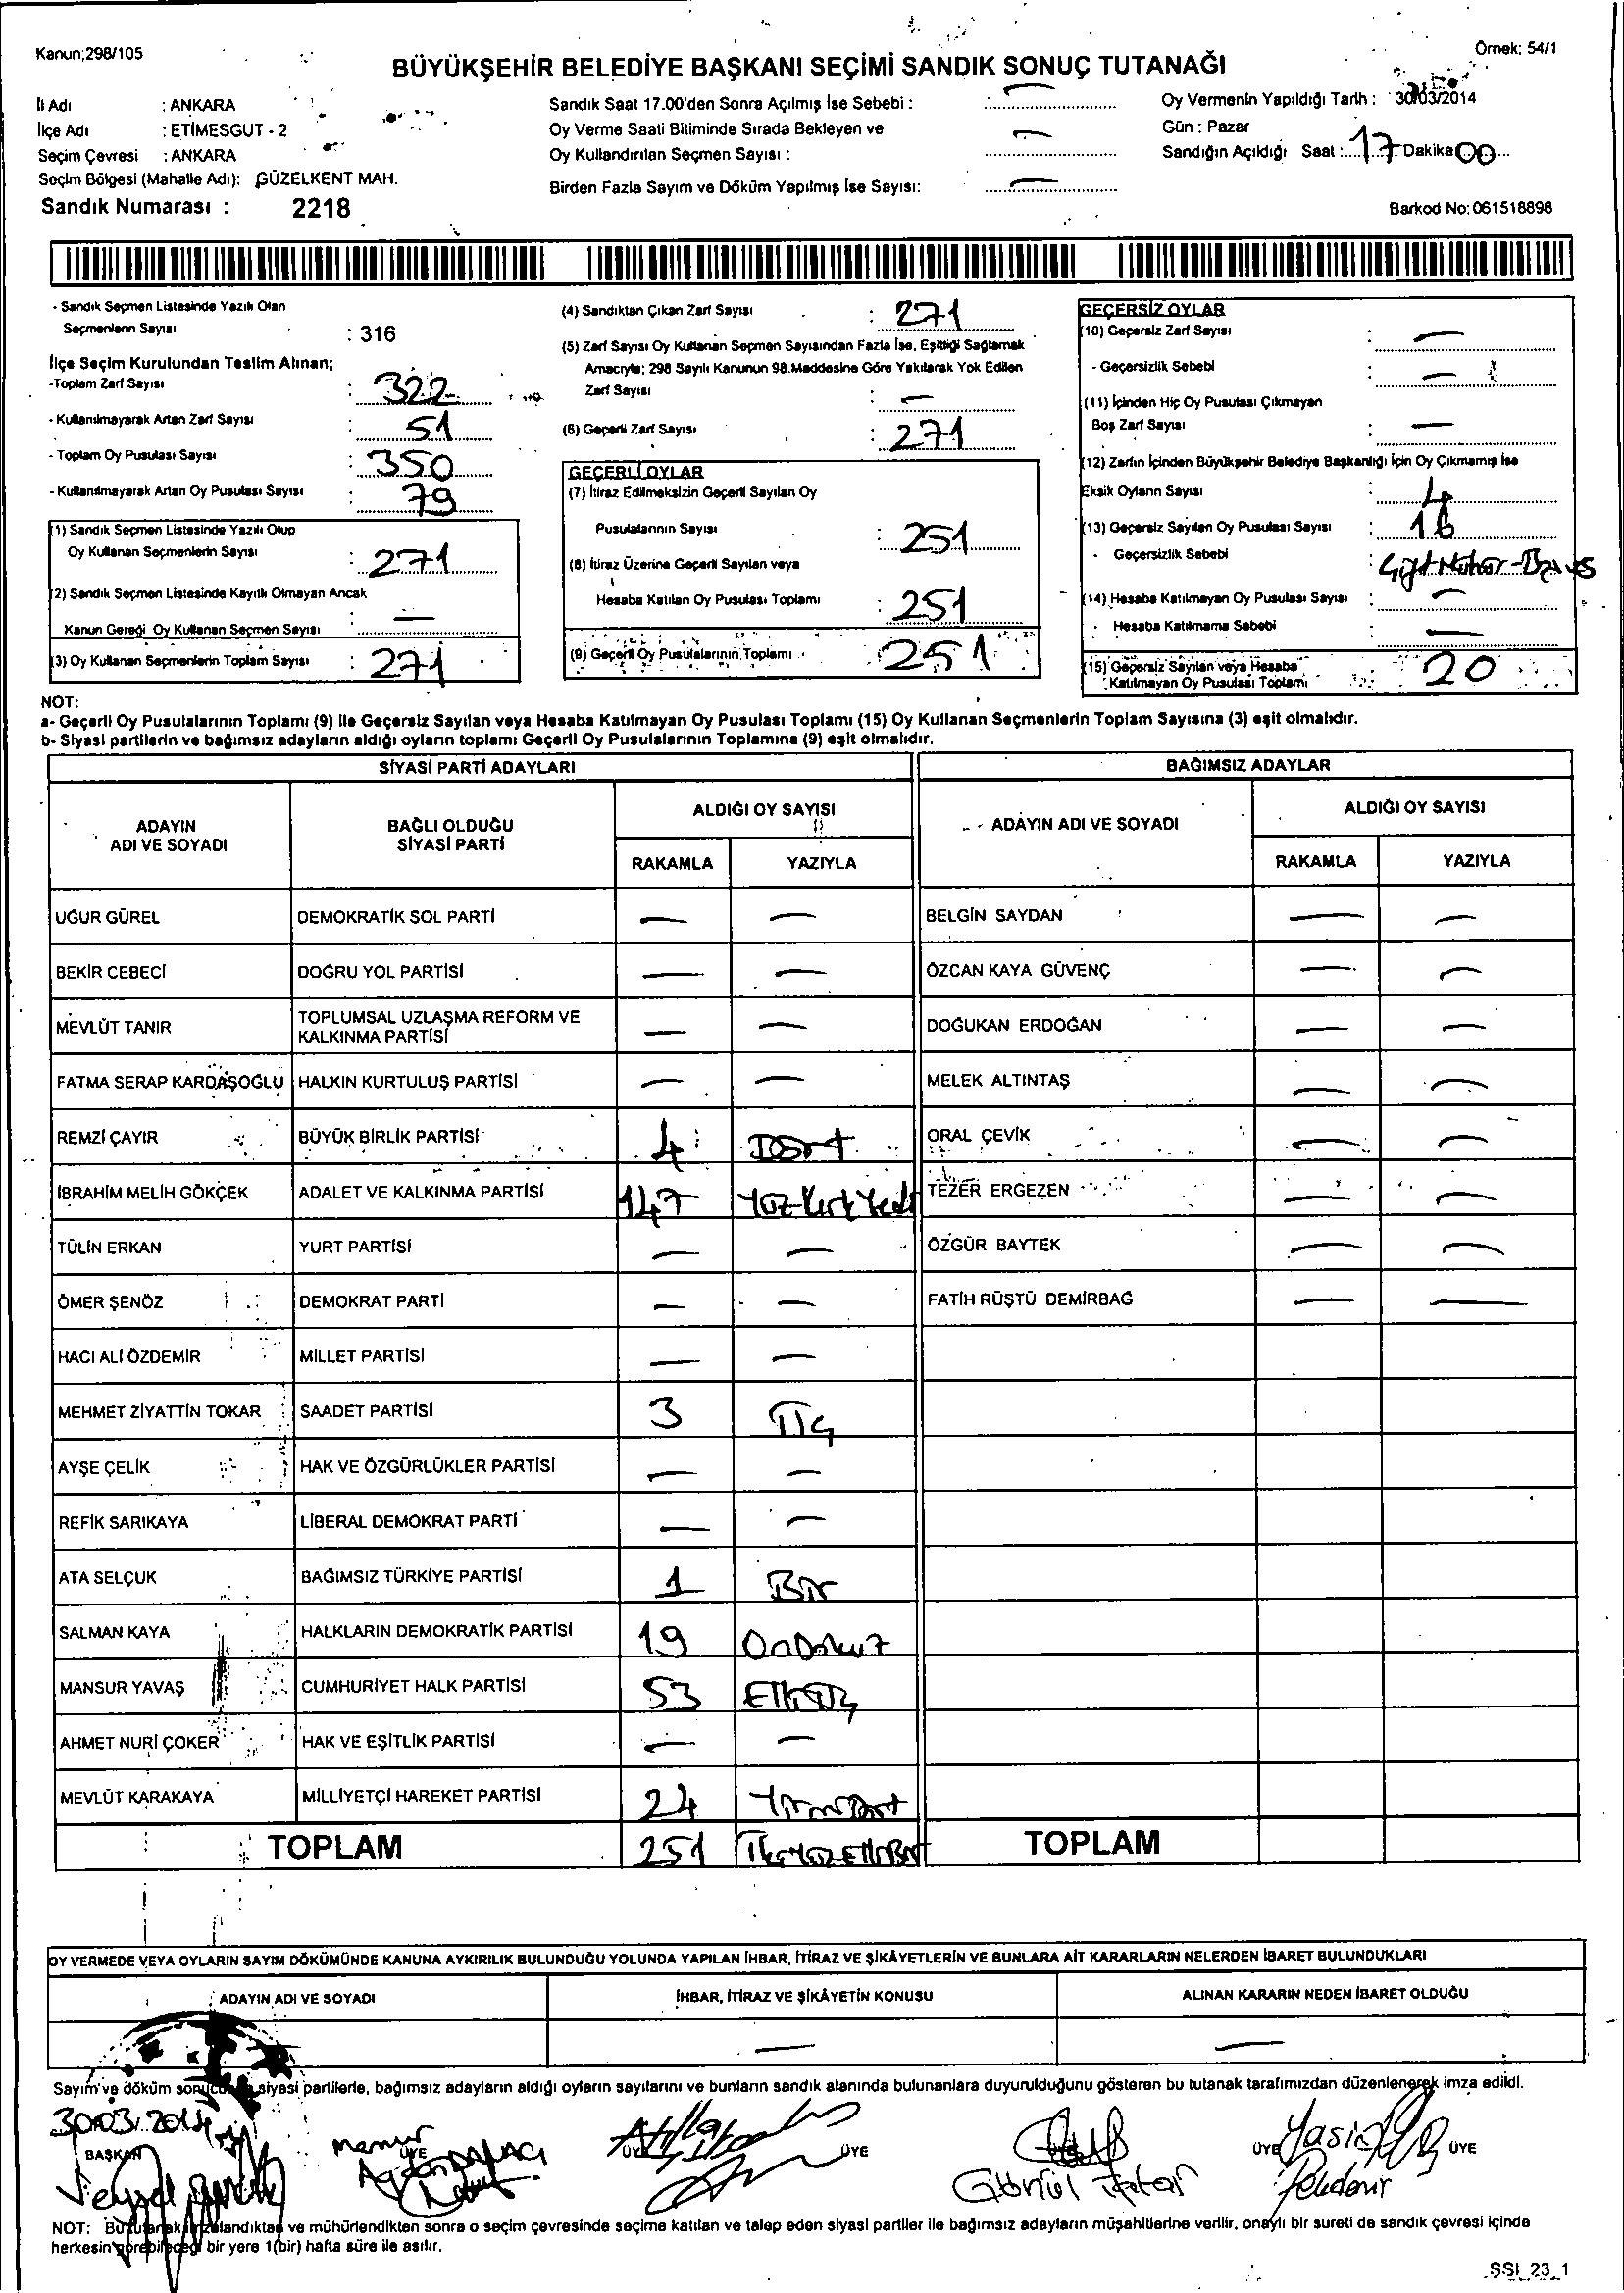 Kanun;298/105
Örnek: 54/1
BÜYÜKŞEHİR BELEDİYE BAŞKANI SEÇİMİ SANDIK SONUÇ TUTANAĞI
İl Adı : ANKARA
İlçe Adı : ETİMESGUT - 2
Seçim Çevresi : ANKARA
Seçim Bölgesi (Mahalle Adı): GÜZELKENT MAH.
Sandık Numarası : 2218
Sandık Saat 17.00'den Sonra Açılmış İse Sebebi : —
Oy Verme Saati Bitiminde Sırada Bekleyen ve
Oy Kullandırılan Seçmen Sayısı : —
Birden Fazla Sayım ve Döküm Yapılmış İse Sayısı: —
Oy Vermenin Yapıldığı Tarih : 30/03/2014
Gün : Pazar
Sandığın Açıldığı Saat : 17 Dakika 00
Barkod No: 061518898
- Sandık Seçmen Listesinde Yazılı Olan
Seçmenlerin Sayısı : 316
İlçe Seçim Kurulundan Teslim Alınan;
-Toplam Zarf Sayısı : 322
- Kullanılmayarak Artan Zarf Sayısı : 51
- Toplam Oy Pusulası Sayısı : 350
- Kullanılmayarak Artan Oy Pusulası Sayısı : 79
(1) Sandık Seçmen Listesinde Yazılı Olup
Oy Kullanan Seçmenlerin Sayısı : 271
(2) Sandık Seçmen Listesinde Kayıtlı Olmayan Ancak
Kanun Gereği Oy Kullanan Seçmen Sayısı —
(3) Oy Kullanan Seçmenlerin Toplam Sayısı : 271
(4) Sandıktan Çıkan Zarf Sayısı : 271
(5) Zarf Sayısı Oy Kullanan Seçmen Sayısından Fazla İse, Eşitliği Sağlamak
Amacıyla; 298 Sayılı Kanunun 98.Maddesine Göre Yakılarak Yok Edilen
Zarf Sayısı : —
(6) Geçerli Zarf Sayısı : 271
GEÇERLİ OYLAR
(7) İtiraz Edilmeksizin Geçerli Sayılan Oy
Pusulalarının Sayısı : 251
(8) İtiraz Üzerine Geçerli Sayılan veya
Hesaba Katılan Oy Pusulası Toplamı : 251
(9) Geçerli Oy Pusulalarının Toplamı : 251
GEÇERSİZ OYLAR
(10) Geçersiz Zarf Sayısı : —
- Geçersizlik Sebebi : —
(11) İçinden Hiç Oy Pusulası Çıkmayan
Boş Zarf Sayısı : —
(12) Zarfın İçinden Büyükşehir Belediye Başkanlığı İçin Oy Çıkmamış İse
Eksik Oyların Sayısı : 4
(13) Geçersiz Sayılan Oy Pusulası Sayısı : 16
- Geçersizlik Sebebi : Çift Mühür -
(14) Hesaba Katılmayan Oy Pusulası Sayısı : —
- Hesaba Katılmama Sebebi : —
(15) Geçersiz Sayılan veya Hesaba
Katılmayan Oy Pusulası Toplamı : 20
NOT:
a- Geçerli Oy Pusulalarının Toplamı (9) ile Geçersiz Sayılan veya Hesaba Katılmayan Oy Pusulası Toplamı (15) Oy Kullanan Seçmenlerin Toplam Sayısına (3) eşit olmalıdır.
b- Siyasi partilerin ve bağımsız adayların aldığı oyların toplamı Geçerli Oy Pusulalarının Toplamına (9) eşit olmalıdır.
SİYASİ PARTİ ADAYLARI
BAĞIMSIZ ADAYLAR
ADAYIN ADI VE SOYADI
BAĞLI OLDUĞU SİYASİ PARTİ
ALDIĞI OY SAYISI
RAKAMLA YAZIYLA
ADAYIN ADI VE SOYADI
ALDIĞI OY SAYISI
RAKAMLA YAZIYLA
UĞUR GÜREL DEMOKRATİK SOL PARTİ — — BELGİN SAYDAN — —
BEKİR CEBECİ DOĞRU YOL PARTİSİ — — ÖZCAN KAYA GÜVENÇ — —
MEVLÜT TANIR TOPLUMSAL UZLAŞMA REFORM VE KALKINMA PARTİSİ — — DOĞUKAN ERDOĞAN — —
FATMA SERAP KARDAŞOĞLU HALKIN KURTULUŞ PARTİSİ — — MELEK ALTINTAŞ — —
REMZİ ÇAYIR BÜYÜK BİRLİK PARTİSİ 4 Dört ORAL ÇEVİK — —
İBRAHİM MELİH GÖKÇEK ADALET VE KALKINMA PARTİSİ 147 Yüz Kırk Yedi TEZER ERGEZEN — —
TÜLİN ERKAN YURT PARTİSİ — — ÖZGÜR BAYTEK — —
ÖMER ŞENÖZ DEMOKRAT PARTİ — — FATİH RÜŞTÜ DEMİRBAĞ — —
HACI ALİ ÖZDEMİR MİLLET PARTİSİ — —
MEHMET ZİYATTİN TOKAR SAADET PARTİSİ 3 Üç
AYŞE ÇELİK HAK VE ÖZGÜRLÜKLER PARTİSİ — —
REFİK SARIKAYA LİBERAL DEMOKRAT PARTİ — —
ATA SELÇUK BAĞIMSIZ TÜRKİYE PARTİSİ 1 Bir
SALMAN KAYA HALKLARIN DEMOKRATİK PARTİSİ 19 OnDokuz
MANSUR YAVAŞ CUMHURİYET HALK PARTİSİ 53 ElliÜç
AHMET NURİ ÇOKER HAK VE EŞİTLİK PARTİSİ — —
MEVLÜT KARAKAYA MİLLİYETÇİ HAREKET PARTİSİ 24 YirmiDört
TOPLAM 251 İkiYüzElliBir TOPLAM
OY VERMEDE VEYA OYLARIN SAYIM DÖKÜMÜNDE KANUNA AYKIRILIK BULUNDUĞU YOLUNDA YAPILAN İHBAR, İTİRAZ VE ŞİKÂYETLERİN VE BUNLARA AİT KARARLARIN NELERDEN İBARET BULUNDUKLARI
ADAYIN ADI VE SOYADI İHBAR, İTİRAZ VE ŞİKÂYETİN KONUSU ALINAN KARARIN NEDEN İBARET OLDUĞU
— —
Sayım ve döküm sonucunda siyasi partilerle, bağımsız adayların aldığı oyların sayılarını ve bunların sandık alanında bulunanlara duyurulduğunu gösteren bu tutanak tarafımızdan düzenlenerek imza edildi.
30.03.2014
BAŞKAN memur ÜYE ÜYE ÜYE ÜYE ÜYE
Gönül
NOT: Bu tutanak imzalandıktan ve mühürlendikten sonra o seçim çevresinde seçime katılan ve talep eden siyasi partiler ile bağımsız adayların müşahitlerine verilir, onaylı bir sureti de sandık çevresi içinde
herkesin görebileceği bir yere 1(bir) hafta süre ile asılır.
SSI_23_1